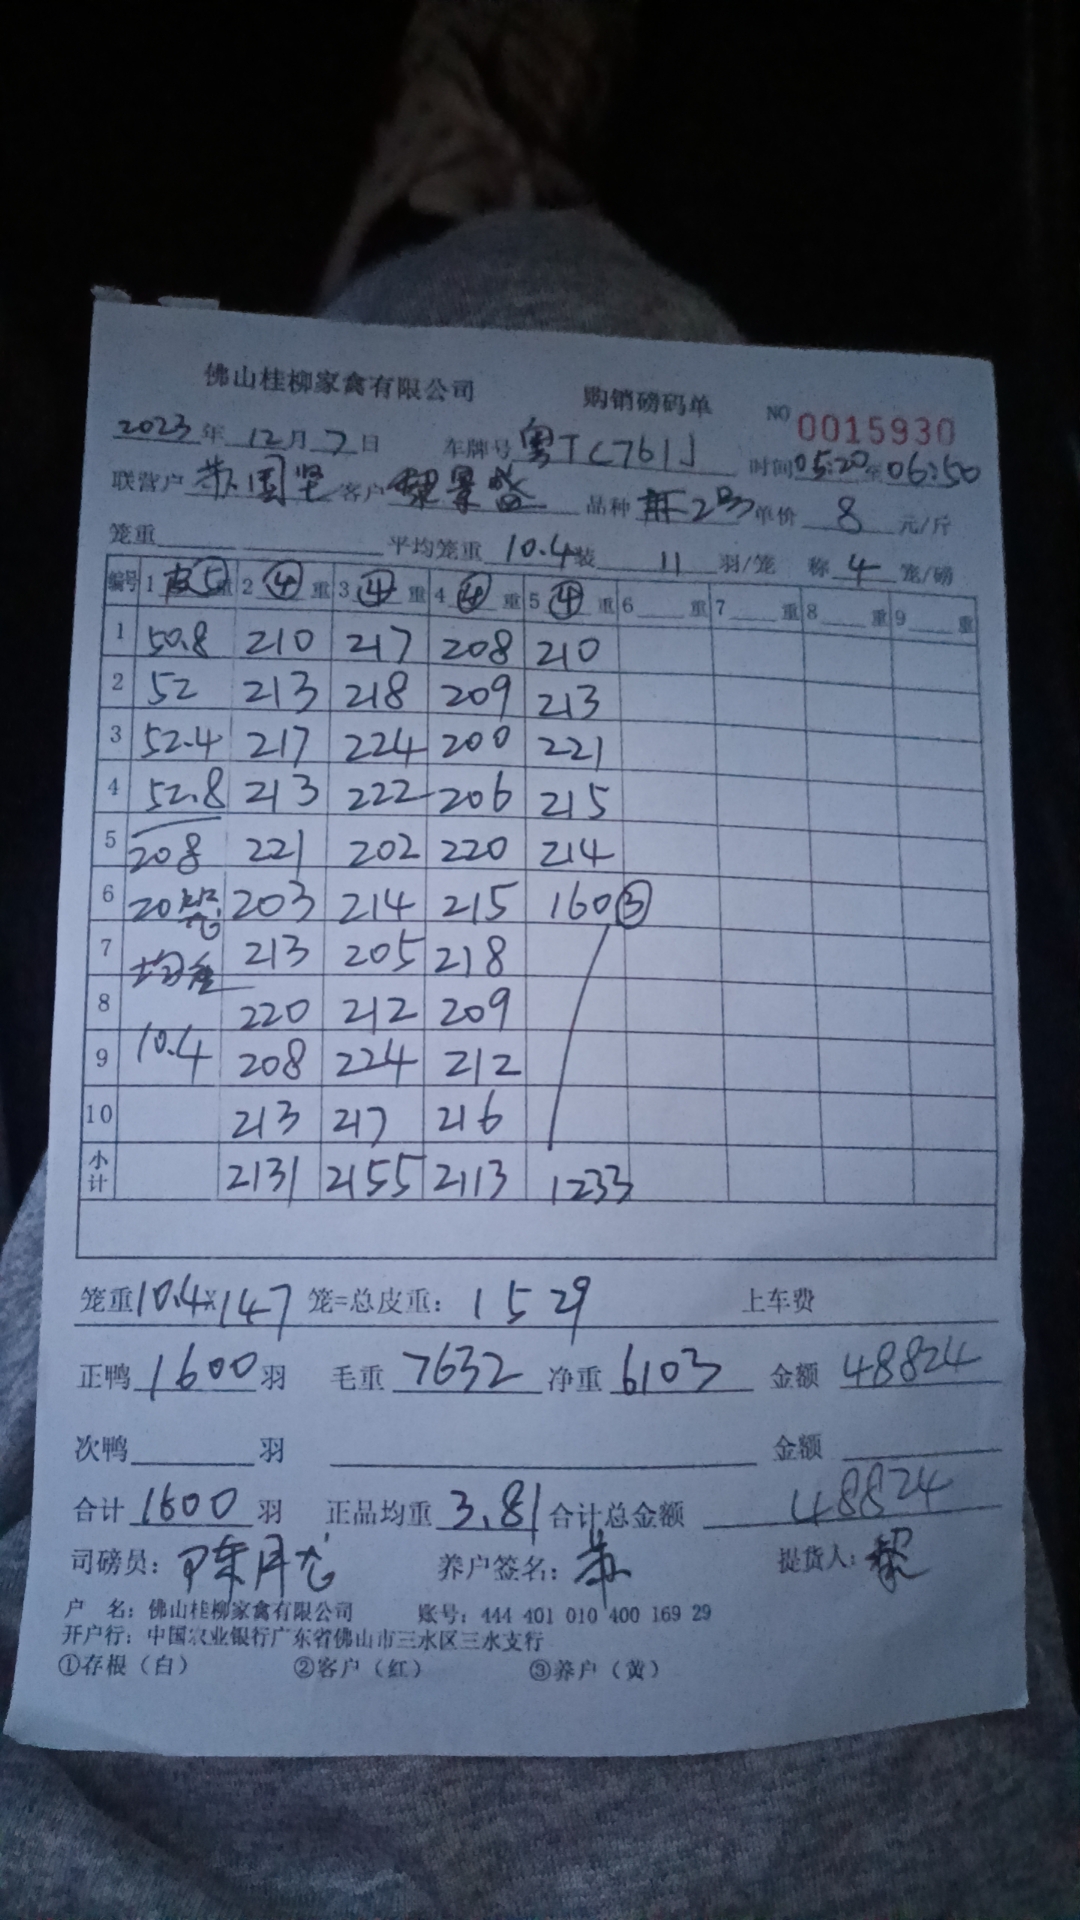 佛山桂柳家禽有限公司 购销磅码单 NO 0015930
2023年 12月 7日 车牌号 粤TC761J 时间 05:20至06:50
联营户 国坚 客户 黎景 品种 麻2号 单价 8 元/斤
笼重 平均笼重 10.4 装 11 羽/笼 称 4 笼/磅
编号 1 皮⑤ 重 2 ④ 重 3 ④ 重 4 ④ 重 5 ④ 重 6 重 7 重 8 重 9 重
1 50.8 210 217 208 210
2 52 213 218 209 213
3 52.4 217 224 200 221
4 52.8 213 222 206 215
5 208 221 202 220 214
6 20笼 203 214 215 160③
7 均重 213 205 218
8 220 212 209
9 10.4 208 224 212
10 213 217 216
小计 2131 2155 2113 1233
笼重 10.4×147 笼=总皮重: 1529 上车费
正鸭 1600 羽 毛重 7632 净重 6103 金额 48824
次鸭 羽 金额
合计 1600 羽 正品均重 3.81 合计总金额 48824
司磅员: 陈月 养户签名: 提货人: 黎
户 名: 佛山桂柳家禽有限公司 账号: 444 401 010 400 169 29
开户行: 中国农业银行广东省佛山市三水区三水支行
①存根（白） ②客户（红） ③养户（黄）